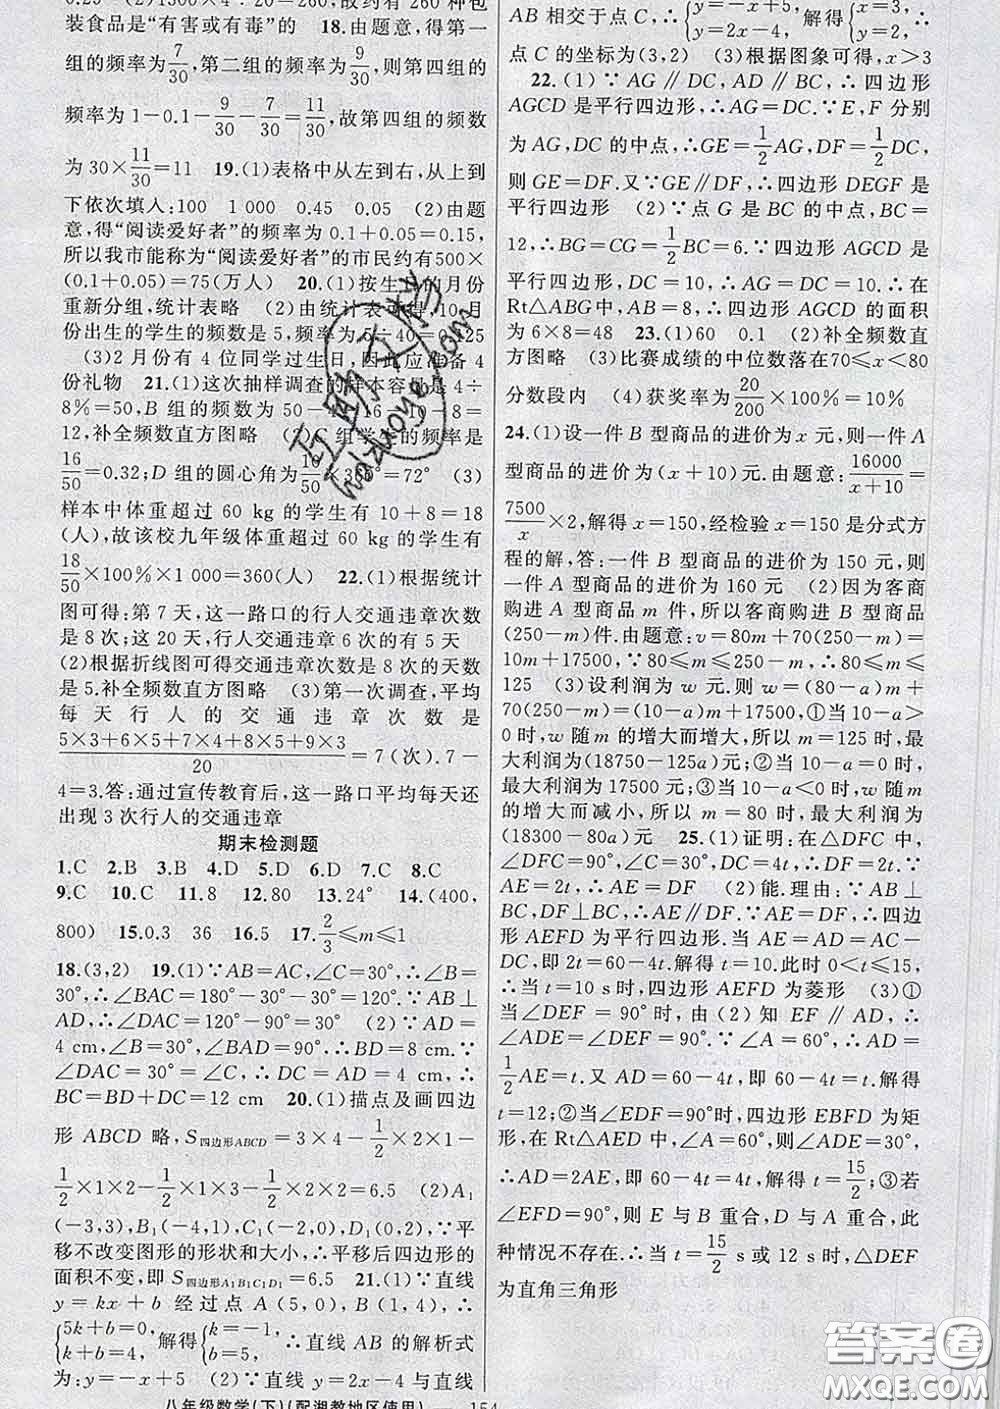 4÷20=0.2 (2)1300×0.2=260,故约有260种包
装食品是“有害或有毒”的 18.由题意,得第一
组的频率为7/30,第二组的频率为9/30,则第四组的
频率为1-0.1-9/30-7/30=11/30,故第四组的频数
为30×11/30=11 19.(1)表格中从左到右,从上到
下依次填入:100 1 000 0.45 0.05 (2)由题
意,得“阅读爱好者”的频率为0.1+0.05=0.15,
所以我市能称为“阅读爱好者”的市民约有500×
(0.1+0.05)=75(万人) 20.(1)按生日的月份
重新分组,统计表略 (2)由统计表可得,10月
份出生的学生的频数是5,频率为5÷40=0.125
(3)2月份有4位同学过生日,因此应准备4
份礼物 21.(1)这次抽样调查的样本容量是4÷
8%=50,B组的频数为50-4-16-10-8=
12,补全频数直方图略 (2)C组学生的频率是
16/50=0.32;D组的圆心角为10/50×360°=72° (3)
样本中体重超过60 kg的学生有10+8=18
(人),故该校九年级体重超过60 kg的学生有
18/50×100%×1 000=360(人) 22.(1)根据统计
图可得:第7天,这一路口的行人交通违章次数
是8次;这20天,行人交通违章6次的有5天
(2)根据折线图可得交通违章次数是8次的天数
是5.补全频数直方图略 (3)第一次调查,平均
每天行人的交通违章次数是
(5×3+6×5+7×4+8×5+9×3)/20=7(次).7-
4=3.答:通过宣传教育后,这一路口平均每天还
出现3次行人的交通违章
期末检测题
1.C 2.B 3.B 4.D 5.D 6.D 7.C 8.C
9.C 10.C 11.8 12.80 13.24° 14.(400,
800) 15.0.3 36 16.5 17.2/3≤m≤1
18.(3,2) 19.(1)∵AB=AC,∠C=30°,∴∠B=
30°,∴∠BAC=180°-30°-30°=120°.∵AB⊥
AD,∴∠DAC=120°-90°=30° (2)∵AD=
4 cm,∠B=30°,∠BAD=90°,∴BD=8 cm.∵
∠DAC=30°=∠C,∴DC=AD=4 cm,∴
BC=BD+DC=12 cm 20.(1)描点及画四边
形ABCD略,S四边形ABCD=3×4-1/2×2×1-
1/2×1×2-1/2×1×3-1/2×2×2=6.5 (2)A₁
(-3,3),B₁(-4,1),C₁(-2,0),D₁(0,2),∵平
移不改变图形的形状和大小,∴平移后四边形的
面积不变,即S四边形A₁B₁C₁D₁=6.5 21.(1)∵直线
y=kx+b经过点A(5,0),B(1,4),∴
{5k+b=0, k+b=4, 解得{k=-1, b=5, ∴直线AB的解析式
为:y=-x+5 (2)∵直线y=2x-4与直线
八年级数学(下)(配湘教地区使用) — 154
AB相交于点C,∴{y=-x+5, y=2x-4, 解得{x=3, y=2, ∴
点C的坐标为(3,2) (3)根据图象可得,x>3
22.(1)∵AG∥DC,AD∥BC,∴四边形
AGCD是平行四边形,∴AG=DC.∵E,F分别
为AG,DC的中点,∴GE=1/2AG,DF=1/2DC,
则GE=DF.又∵GE∥DF,∴四边形DEGF是
平行四边形 (2)∵点G是BC的中点,BC=
12,∴BG=CG=1/2BC=6.∵四边形AGCD是
平行四边形,DC=10,∴AG=DC=10.在
Rt△ABG中,AB=8,∴四边形AGCD的面积
为6×8=48 23.(1)60 0.1 (2)补全频数直
方图略 (3)比赛成绩的中位数落在70≤x<80
分数段内 (4)获奖率为20/200×100%=10%
24.(1)设一件B型商品的进价为x元,则一件A
型商品的进价为(x+10)元.由题意:16000/(x+10)=
7500/x×2,解得x=150,经检验x=150是分式方
程的解,答:一件B型商品的进价为150元,则
一件A型商品的进价为160元 (2)因为客商
购进A型商品m件,所以客商购进B型商品
(250-m)件.由题意:v=80m+70(250-m)=
10m+17500,∵80≤m≤250-m,∴80≤m≤
125 (3)设利润为w元.则w=(80-a)m+
70(250-m)=(10-a)m+17500,①当10-a>
0时,w随m的增大而增大,所以m=125时,最
大利润为(18750-125a)元;②当10-a=0时,
最大利润为17500元;③当10-a<0时,w随m
的增大而减小,所以m=80时,最大利润为
(18300-80a)元 25.(1)证明:在△DFC中,
∠DFC=90°,∠C=30°,DC=4t,∴DF=2t.∵
AE=2t,∴AE=DF (2)能.理由:∵AB⊥
BC,DF⊥BC,∴AE∥DF.∵AE=DF,∴四边
形AEFD为平行四边形.当AE=AD=AC-
DC,即2t=60-4t.解得t=10.此时0<t≤15,
∴当t=10 s时,四边形AEFD为菱形 (3)①
当∠DEF=90°时,由(2)知EF∥AD,∴
∠ADE=∠DEF=90°.∵∠A=60°,∴AD=
1/2AE=t.又AD=60-4t,即60-4t=t.解得
t=12;②当∠EDF=90°时,四边形EBFD为矩
形,在Rt△AED中,∠A=60°,则∠ADE=30°,
∴AD=2AE,即60-4t=4t,解得t=15/2;③若
∠EFD=90°,则E与B重合,D与A重合,此
种情况不存在.∴当t=15/2 s或12 s时,△DEF
为直角三角形
答案圈
MXQE.COM